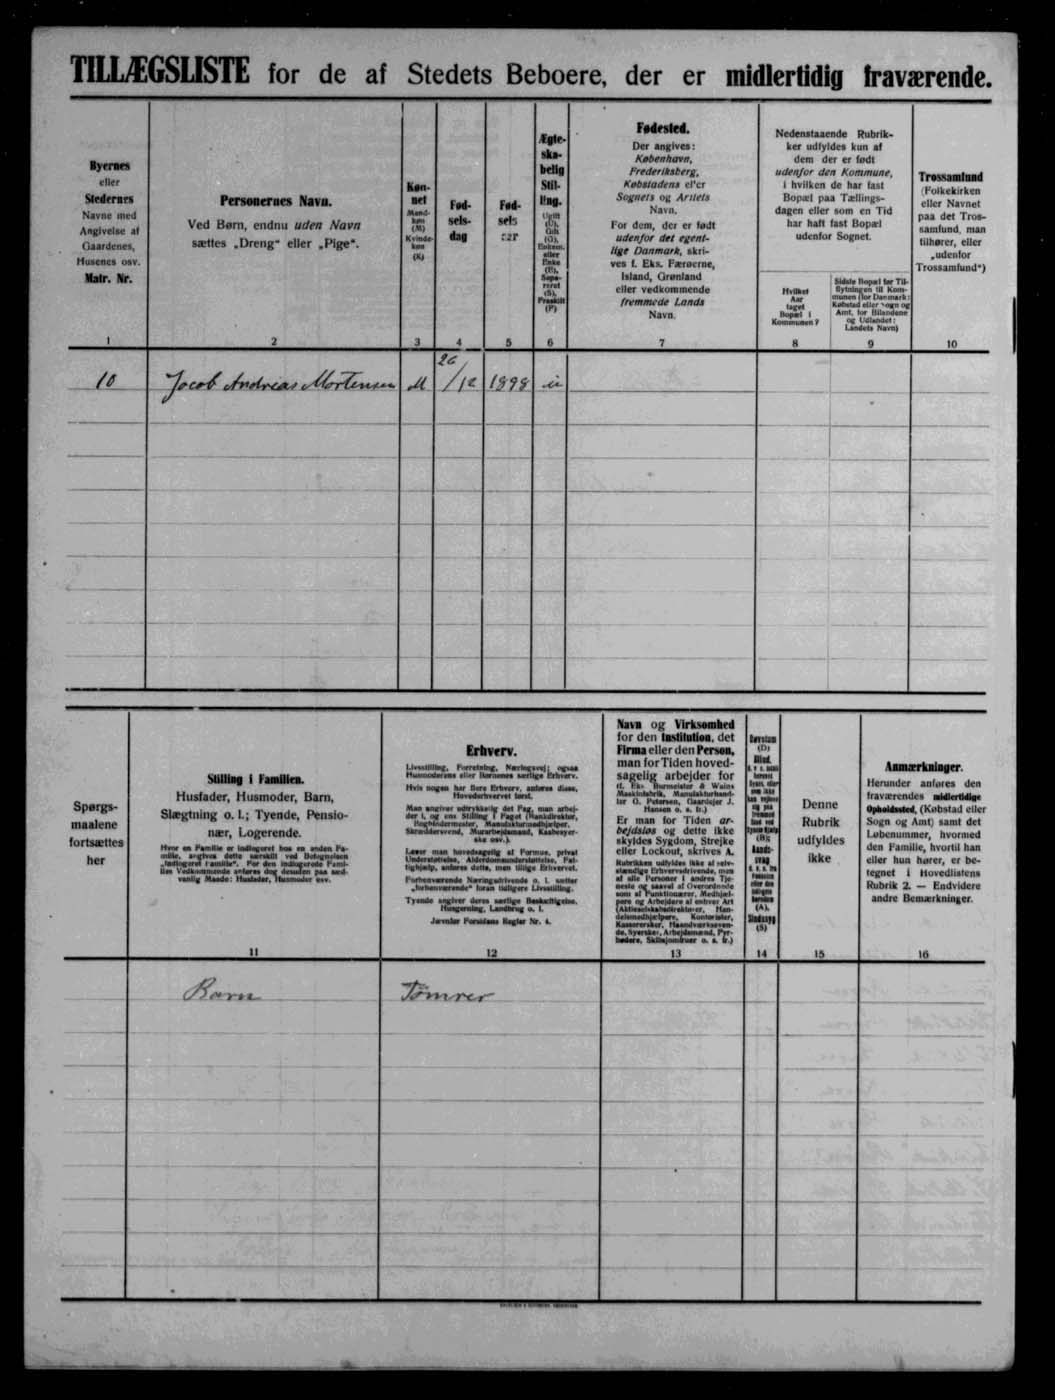 TILLÆGSLISTE for de af Stedets Beboere, der er midlertidig fraværende.
Byernes
eller
Stedernes
Navne med
Angivelse af
Gaardenes,
Husenes osv.
Matr. Nr.
1
Personernes Navn.
Ved Børn, endnu uden Navn
sættes „Dreng“ eller „Pige“.
2
Køn-
net
Mand-
køn
(M)
Kvinde-
køn
(K)
3
Fød-
sels-
dag
4
Fød-
sels
aar
5
Ægte-
ska-
belig
Stil-
ling.
Ugift
(U),
Gift
(G),
Enkem.
eller
Enke
(E),
Sepa-
reret
(S),
Fraskilt
(F)
6
Fødested.
Der angives:
København,
Frederiksberg,
Købstadens eller
Sognets og Amtets
Navn.
For dem, der er født
udenfor det egent-
lige Danmark, skri-
ves f. Eks. Færøerne,
Island, Grønland
eller vedkommende
fremmede Lands
Navn.
7
Nedenstaaende Rubrik-
ker udfyldes kun af
dem der er født
udenfor den Kommune,
i hvilken de har fast
Bopæl paa Tællings-
dagen eller som en Tid
har haft fast Bopæl
udenfor Sognet.
Hvilket
Aar
taget
Bopæl i
Kommunen?
8
Sidste Bopæl før Til-
flytningen til Kom-
munen (for Danmark:
Købstad eller Sogn og
Amt, for Bilandene
og Udlandet:
Landets Navn)
9
Trossamfund
(Folkekirken
eller Navnet
paa det Tros-
samfund, man
tilhører, eller
„udenfor
Trossamfund“)
10
10 Jocob Andreas Mortensen M 26/12 1898 u
Spørgs-
maalene
fortsættes
her
Stilling i Familien.
Husfader, Husmoder, Barn,
Slægtning o. l.; Tyende, Pensio-
nær, Logerende.
Hvor en Familie er indlogeret hos en anden Fa-
milie, angives dette særskilt ved Betegnelsen
„indlogeret Familie“. For den indlogerede Fami-
lies Vedkommende anføres dog desuden paa sæd-
vanlig Maade: Husfader, Husmoder osv.
11
Erhverv.
Livsstilling, Forretning, Næringsvej; ogsaa
Husmoderens eller Børnenes særlige Erhverv.
Hvis nogen har flere Erhverv, anføres disse,
Hovederhvervet først.
Man angiver udtrykkelig det Fag, man arbej-
der i, og ens Stilling i Faget (Bankdirektør,
Bogbindermester, Manufakturmedhjælper,
Skræddersvend, Murarbejdsmand, Kaabesyer-
ske osv.).
Lever man hovedsagelig af Formue, privat
Understøttelse, Alderdomsunderstøttelse, Fat-
tighjælp, anføres dette, men tillige Erhvervet.
Forhenværende Næringsdrivende o. l. sætter
„forhenværende“ foran tidligere Livsstilling.
Tyende angiver deres særlige Beskæftigelse,
Husgerning, Landbrug o. l.
Jævnfør Forsidens Regler Nr. 4.
12
Navn og Virksomhed
for den Institution, det
Firma eller den Person,
man for Tiden hoved-
sagelig arbejder for
(f. Eks. Burmeister & Wains
Maskinfabrik, Manufakturhand-
ler O. Petersen, Gaardejer J.
Hansen o. s. fr.)
Er man for Tiden ar-
bejdsløs og dette ikke
skyldes Sygdom, Strejke
eller Lockout, skrives A.
Rubrikken udfyldes ikke af selv-
stændige Erhvervsdrivende, men
af alle Personer i andres Tje-
neste og saavel af Overordnede
som af Funktionærer, Medhjæl-
pere og Arbejdere af enhver Art
(Aktieselskabsdirektører, Han-
delsmedhjælpere, Kontorister,
Kasserersker, Haandværkssven-
de, Syersker, Arbejdsmænd, Fyr-
bødere, Skibsjomfruer o. s. fr.)
13
Døvstum
(D)
Blind.
(B);
Aands-
svag
(A),
Sindssyg
(S)
14
Denne
Rubrik
udfyldes
ikke
15
Anmærkninger.
Herunder anføres den
fraværendes midlertidige
Opholdssted, (Købstad eller
Sogn og Amt) samt det
Løbenummer, hvormed
den Familie, hvortil han
eller hun hører, er be-
tegnet i Hovedlistens
Rubrik 2. — Endvidere
andre Bemærkninger.
16
Barn Tømrer